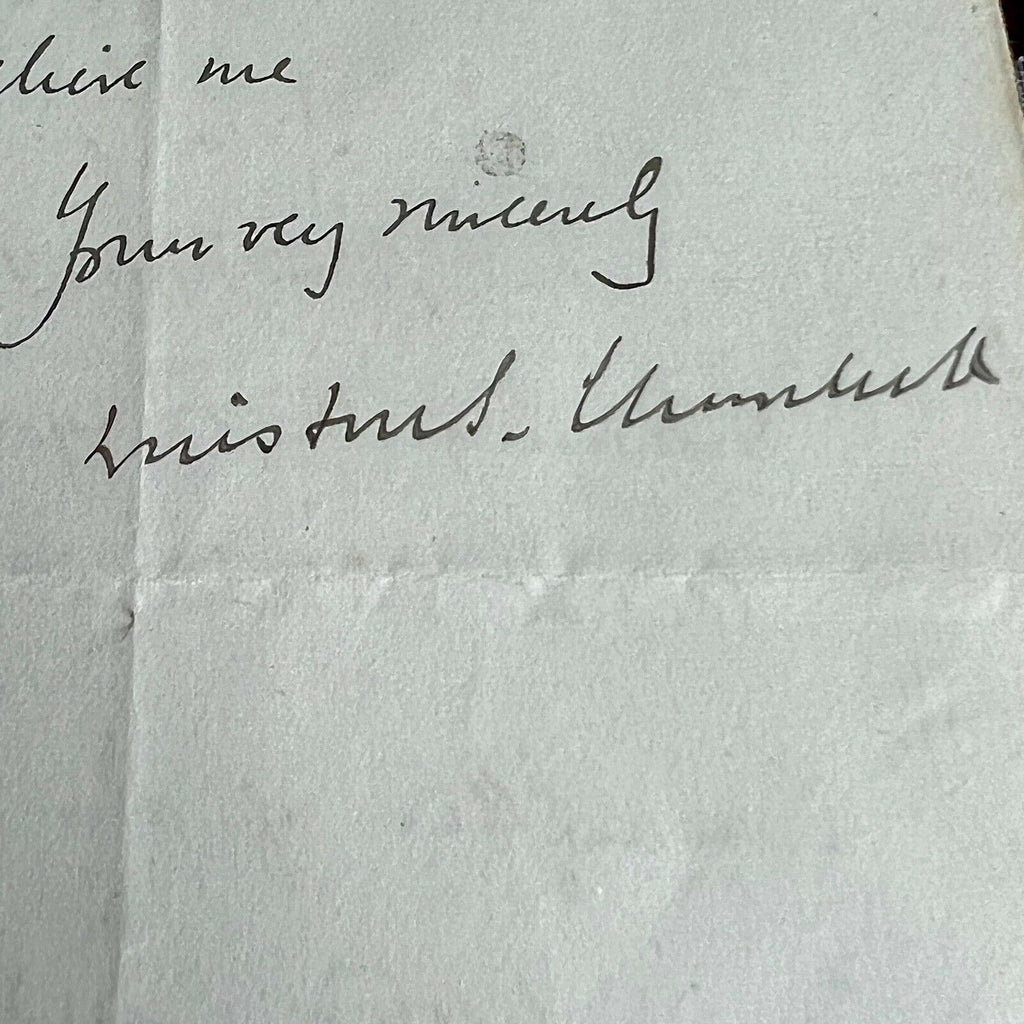 me
Yours very sincerely
Winston S. Churchill